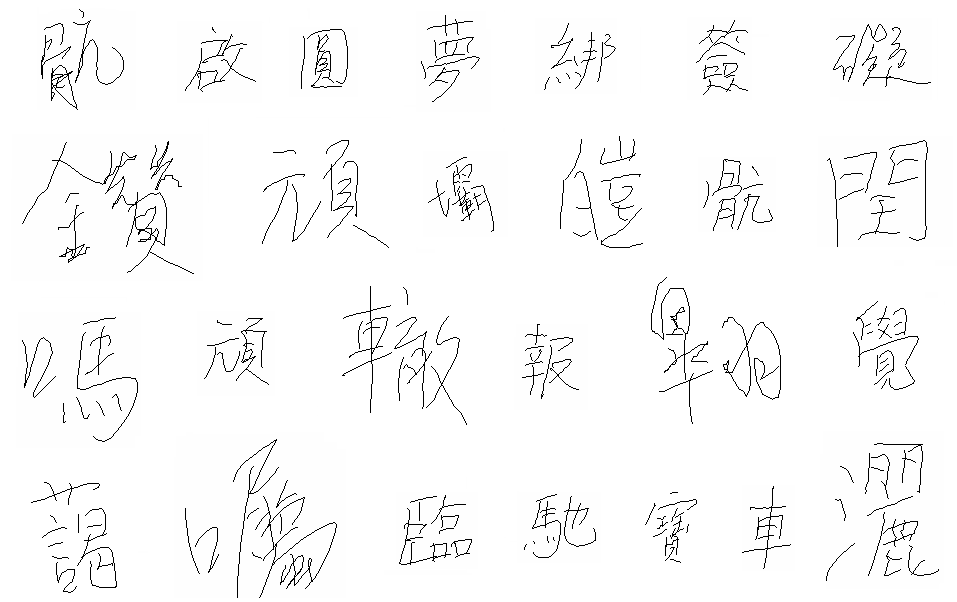 骯啟圓夢綁簽礙
鑽頑壩皚骯閏
嗎頑轍報翱覺
藹囑臨馳寶車灑